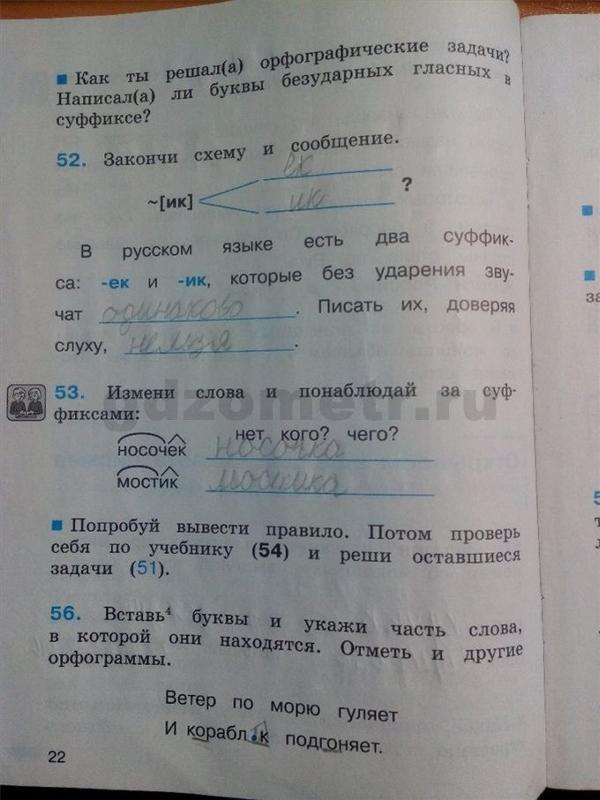 ■ Как ты решал(а) орфографические задачи?
Написал(а) ли буквы безударных гласных в
суффиксе?
52. Закончи схему и сообщение.
ек
~[ик] ?
ик
В русском языке есть два суффик-
са: -ек и -ик, которые без ударения зву-
чат одинаково. Писать их, доверяя
слуху, нельзя.
53. Измени слова и понаблюдай за суф-
фиксами:
gdzometr.ru
нет кого? чего?
носочек носочка
мостик мостика
■ Попробуй вывести правило. Потом проверь
себя по учебнику (54) и реши оставшиеся
задачи (51).
56. Вставь⁴ буквы и укажи часть слова,
в которой они находятся. Отметь и другие
орфограммы.
Ветер по морю гуляет
И корабл.к подгоняет.
22